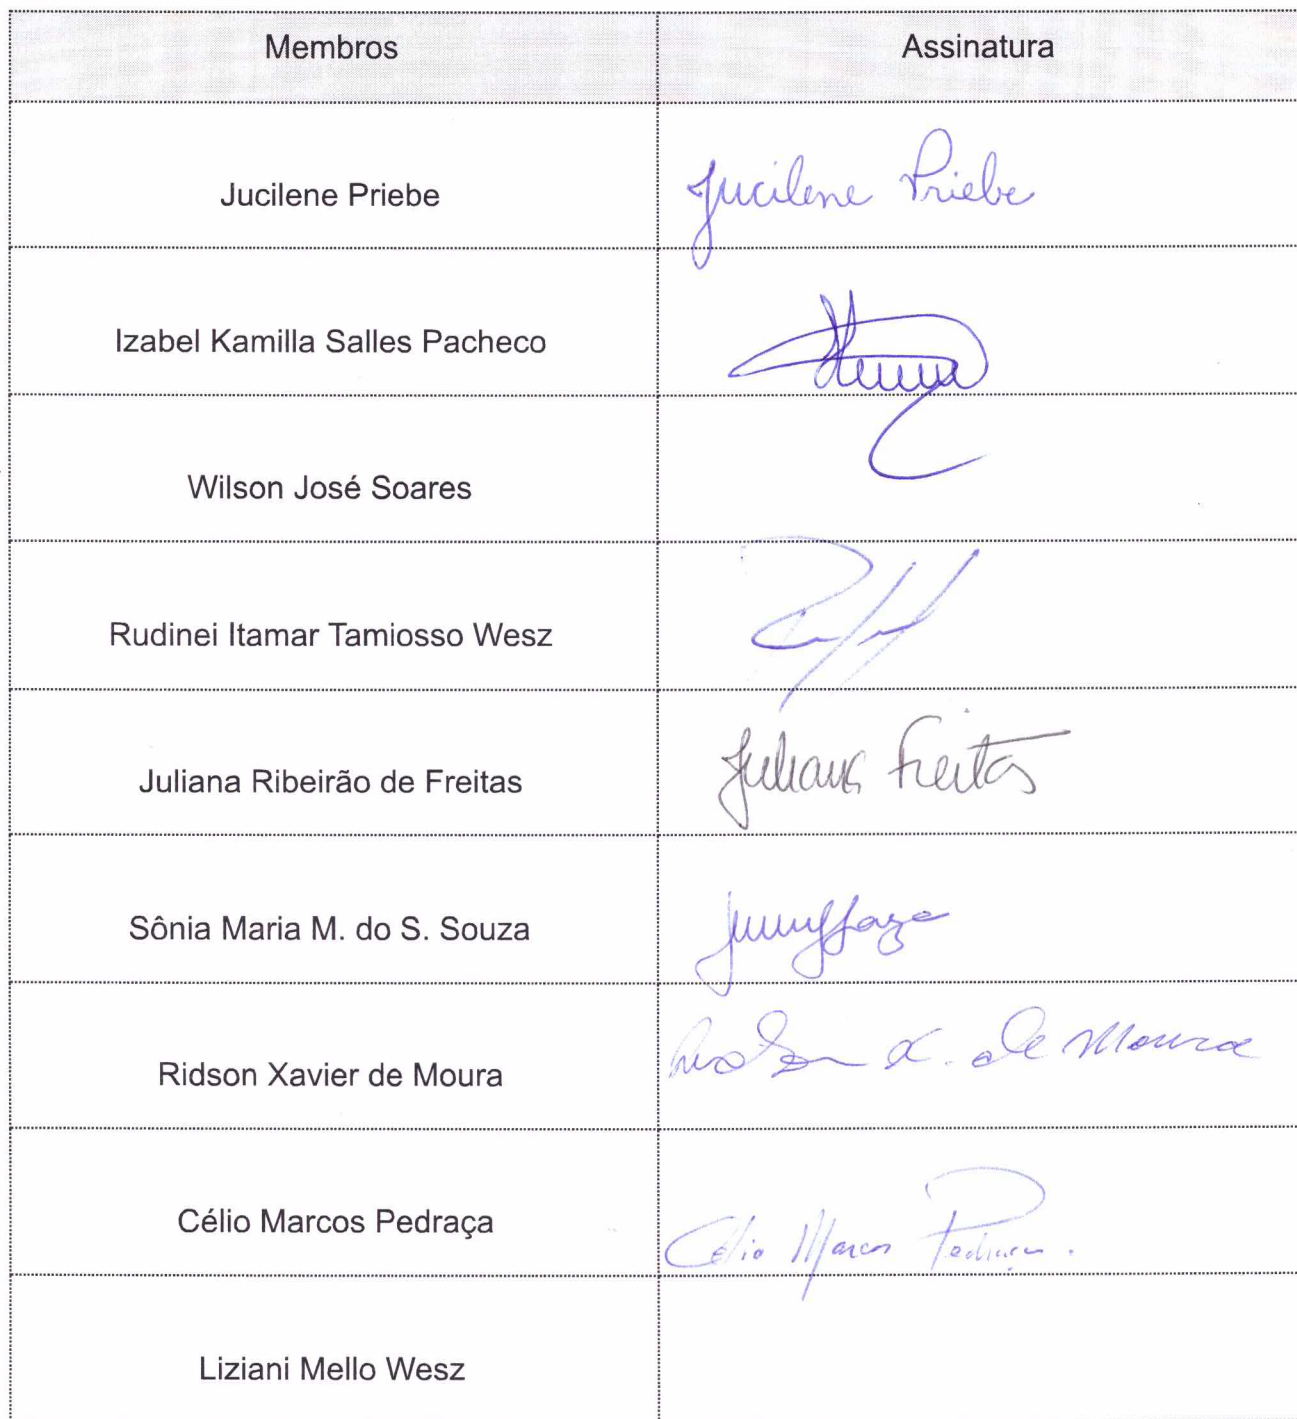 Membros Assinatura
Jucilene Priebe Jucilene Priebe
Izabel Kamilla Salles Pacheco
Wilson José Soares
Rudinei Itamar Tamiosso Wesz
Juliana Ribeirão de Freitas Juliana Freitas
Sônia Maria M. do S. Souza
Ridson Xavier de Moura X. de Moura
Célio Marcos Pedraça Célio Marcos Pedraça.
Liziani Mello Wesz